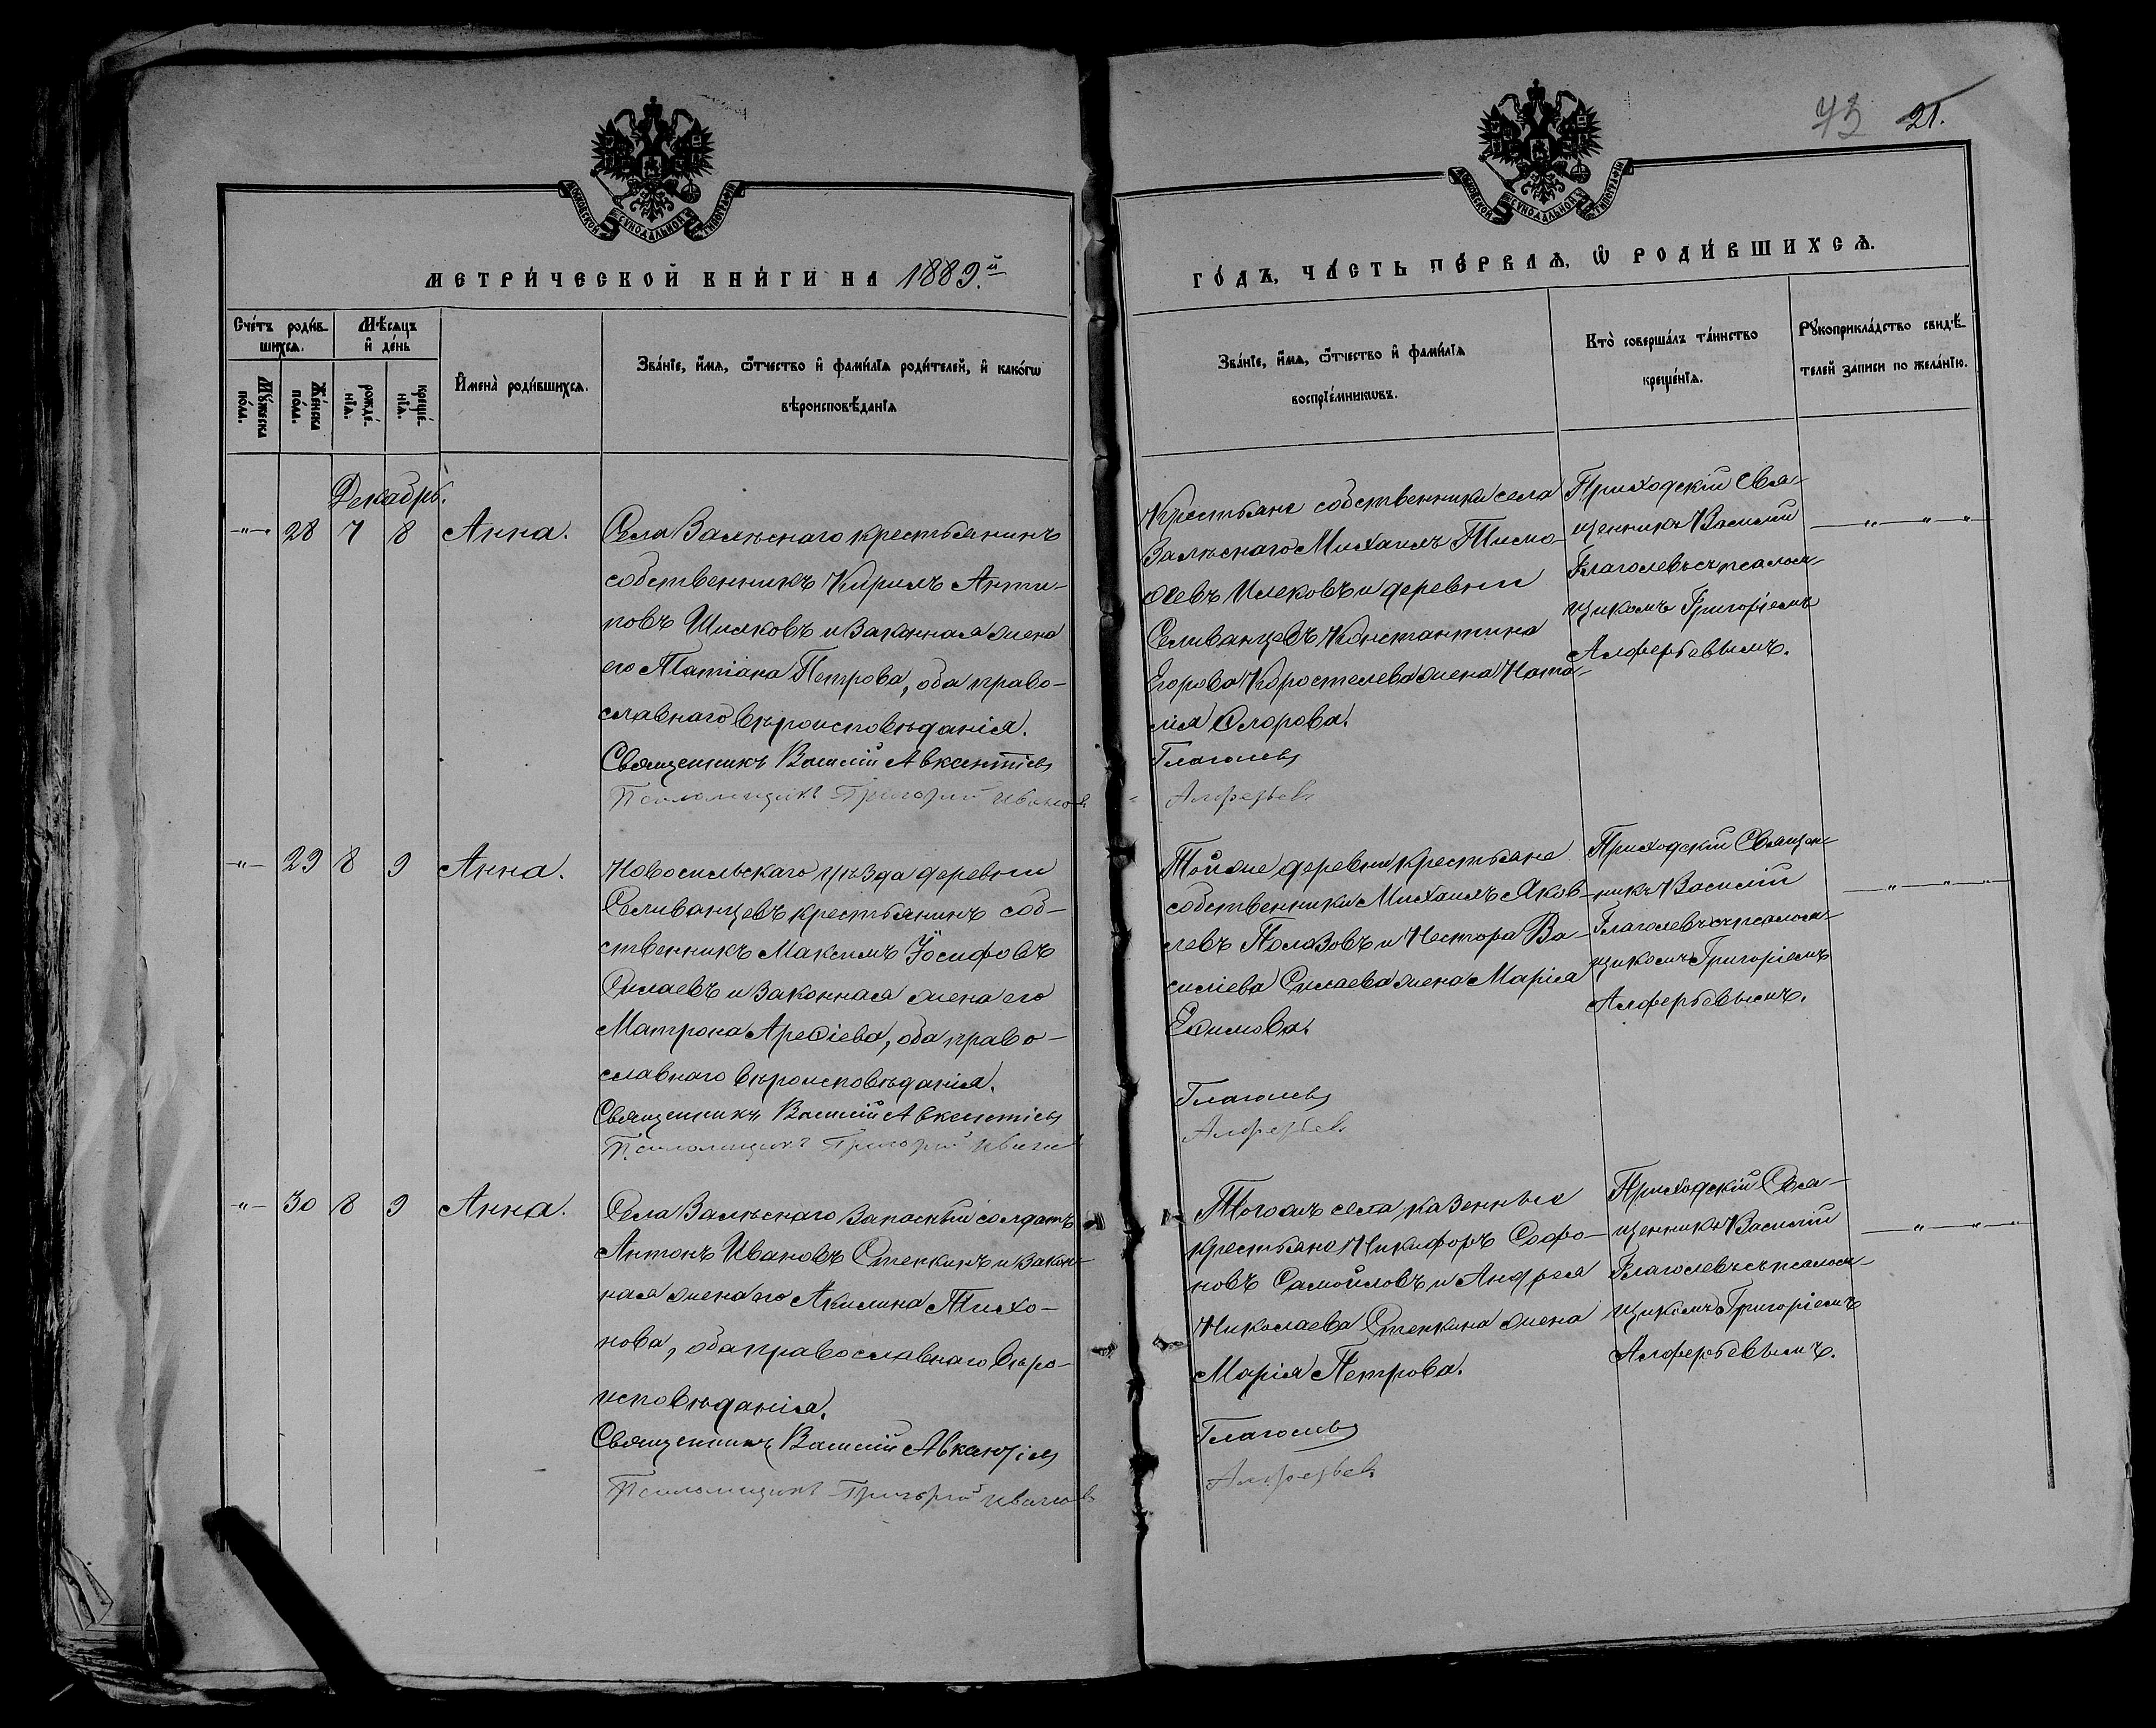 73 21.
МОСКОВСКОЙ СѴНОДАЛЬНОЙ ТИПОГРАФІИ
МОСКОВСКОЙ СѴНОДАЛЬНОЙ ТИПОГРАФІИ
МЕТРИ́ЧЕСКОЙ КНИ́ГИ НА 1889.й
ГО́ДЪ, ЧА́СТЬ ПЕ́РВАѦ, Ѡ҆ РОДИ́ВШИХСѦ.
Сче́тъ роди́в-
шихсѧ.
Мѣ́сѧцъ
и҆ де́нь
Мꙋ́жеска
по́ла.
Же́нска
по́ла.
рожде́-
нїѧ.
креще́-
нїѧ.
И҆мена̀ роди́вшихсѧ.
Зва́нїе, и҆́мѧ, ѻ҆́тчество и҆ фами́лїѧ роди́телей, и҆ како́гѡ
вѣроисповѣ́данїѧ
Зва́нїе, и҆́мѧ, ѻ҆́тчество и҆ фами́лїѧ
воспрїе́мникѡвъ.
Кто̀ соверша́лъ та́инство
креще́нїѧ.
Рꙋкоприкла́дство свидѣ́-
телей за́писи по жела́нїю.
Декабрь.
-"- 28 7 8 Анна.
Села Залѣснаго крестьянинъ
собственникъ Кирилъ Анти-
повъ Шиляковъ и законная жена
его Татіана Петрова, оба право-
славнаго вѣроисповѣданія.
Священникъ Василій Авксентіевъ
Псаломщикъ Григорій Ивановъ
Крестьяне собственники села
Залѣснаго Михаилъ Тимо-
ѳеевъ Илековъ и деревни
Селиванцевъ Константина
Егорова Коростелева жена Ната-
лія Ѳлорова.
Глаголевъ
Алферьевъ
Приходскій Свя-
щенникъ Василій
Глаголевъ съ псалом-
щикомъ Григоріемъ
Алферьевымъ.
-"- 29 8 9 Анна.
Новосильскаго уѣзда деревни
Селиванцевъ крестьянинъ соб-
ственникъ Максимъ Іосифовъ
Силаевъ и законная жена его
Матрона Ареѳіева, оба право-
славнаго вѣроисповѣданія.
Священникъ Василій Авксентіевъ
Псаломщикъ Григорій Ивановъ
Той же деревни крестьяне
собственники Михаилъ Яков-
левъ Полазовъ и Нестора Ва-
силіева Силаева жена Марія
Еѳимова.
Глаголевъ
Алферьевъ
Приходскій Священ-
никъ Василій
Глаголевъ съ псалом-
щикомъ Григоріемъ
Алферьевымъ.
-"- 30 8 9 Анна.
Села Залѣснаго запасный солдатъ
Антонъ Ивановъ Степкинъ и закон-
ная жена его Акилина Тихо-
нова, оба православнаго вѣро-
исповѣданія.
Священникъ Василій Авксентіевъ
Псаломщикъ Григорій Ивановъ
Тогожъ села казенные
крестьяне Никифоръ Софо-
новъ Самойловъ и Андрея
Николаева Степкина жена
Марія Петрова.
Глаголевъ
Алферьевъ
Приходскій Свя-
щенникъ Василій
Глаголевъ съ псалом-
щикомъ Григоріемъ
Алферьевымъ.